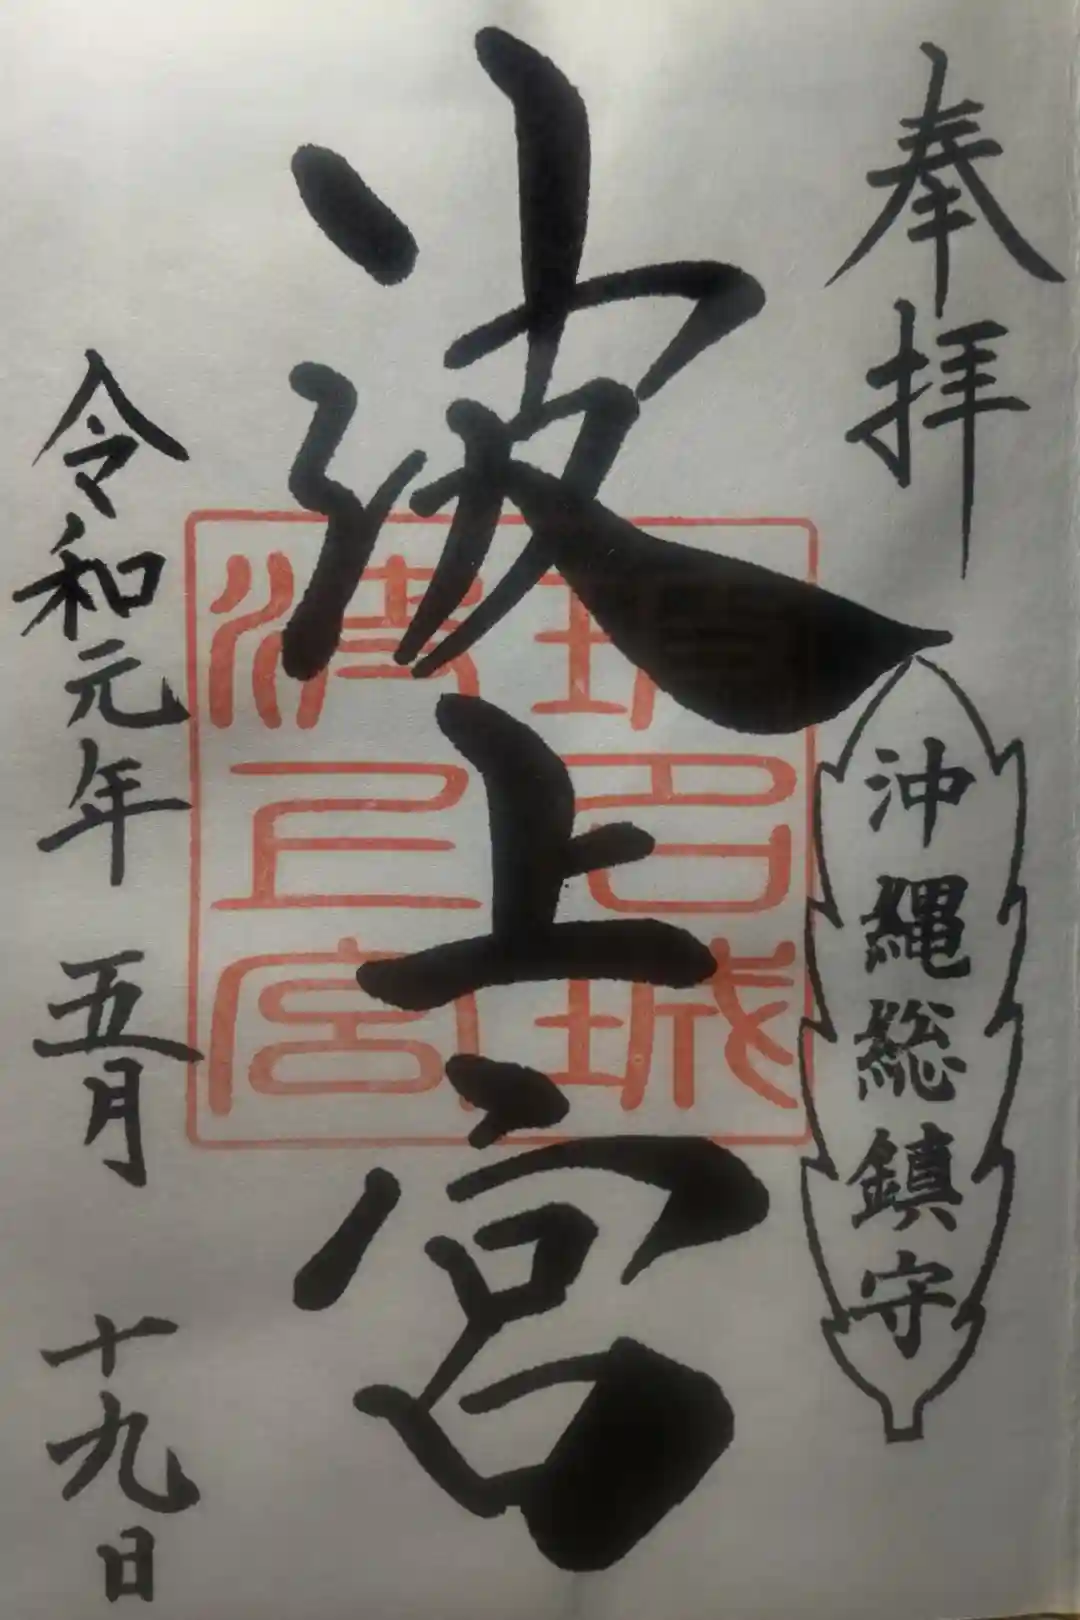 奉拝
沖縄総鎮守
波上宮
琉球國
波上宮
令和元年五月十九日